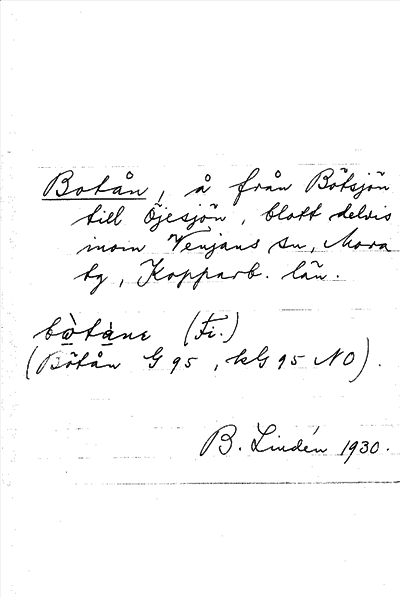 Botån, å från Bötsjön
till Öjesjön, blott delvis
inom Venjans sn, Mora
tg, Kopparb. län.
bòtàne (Fi.)
(Bötån G 95, kG 95 NO).
B. Lindén 1930.